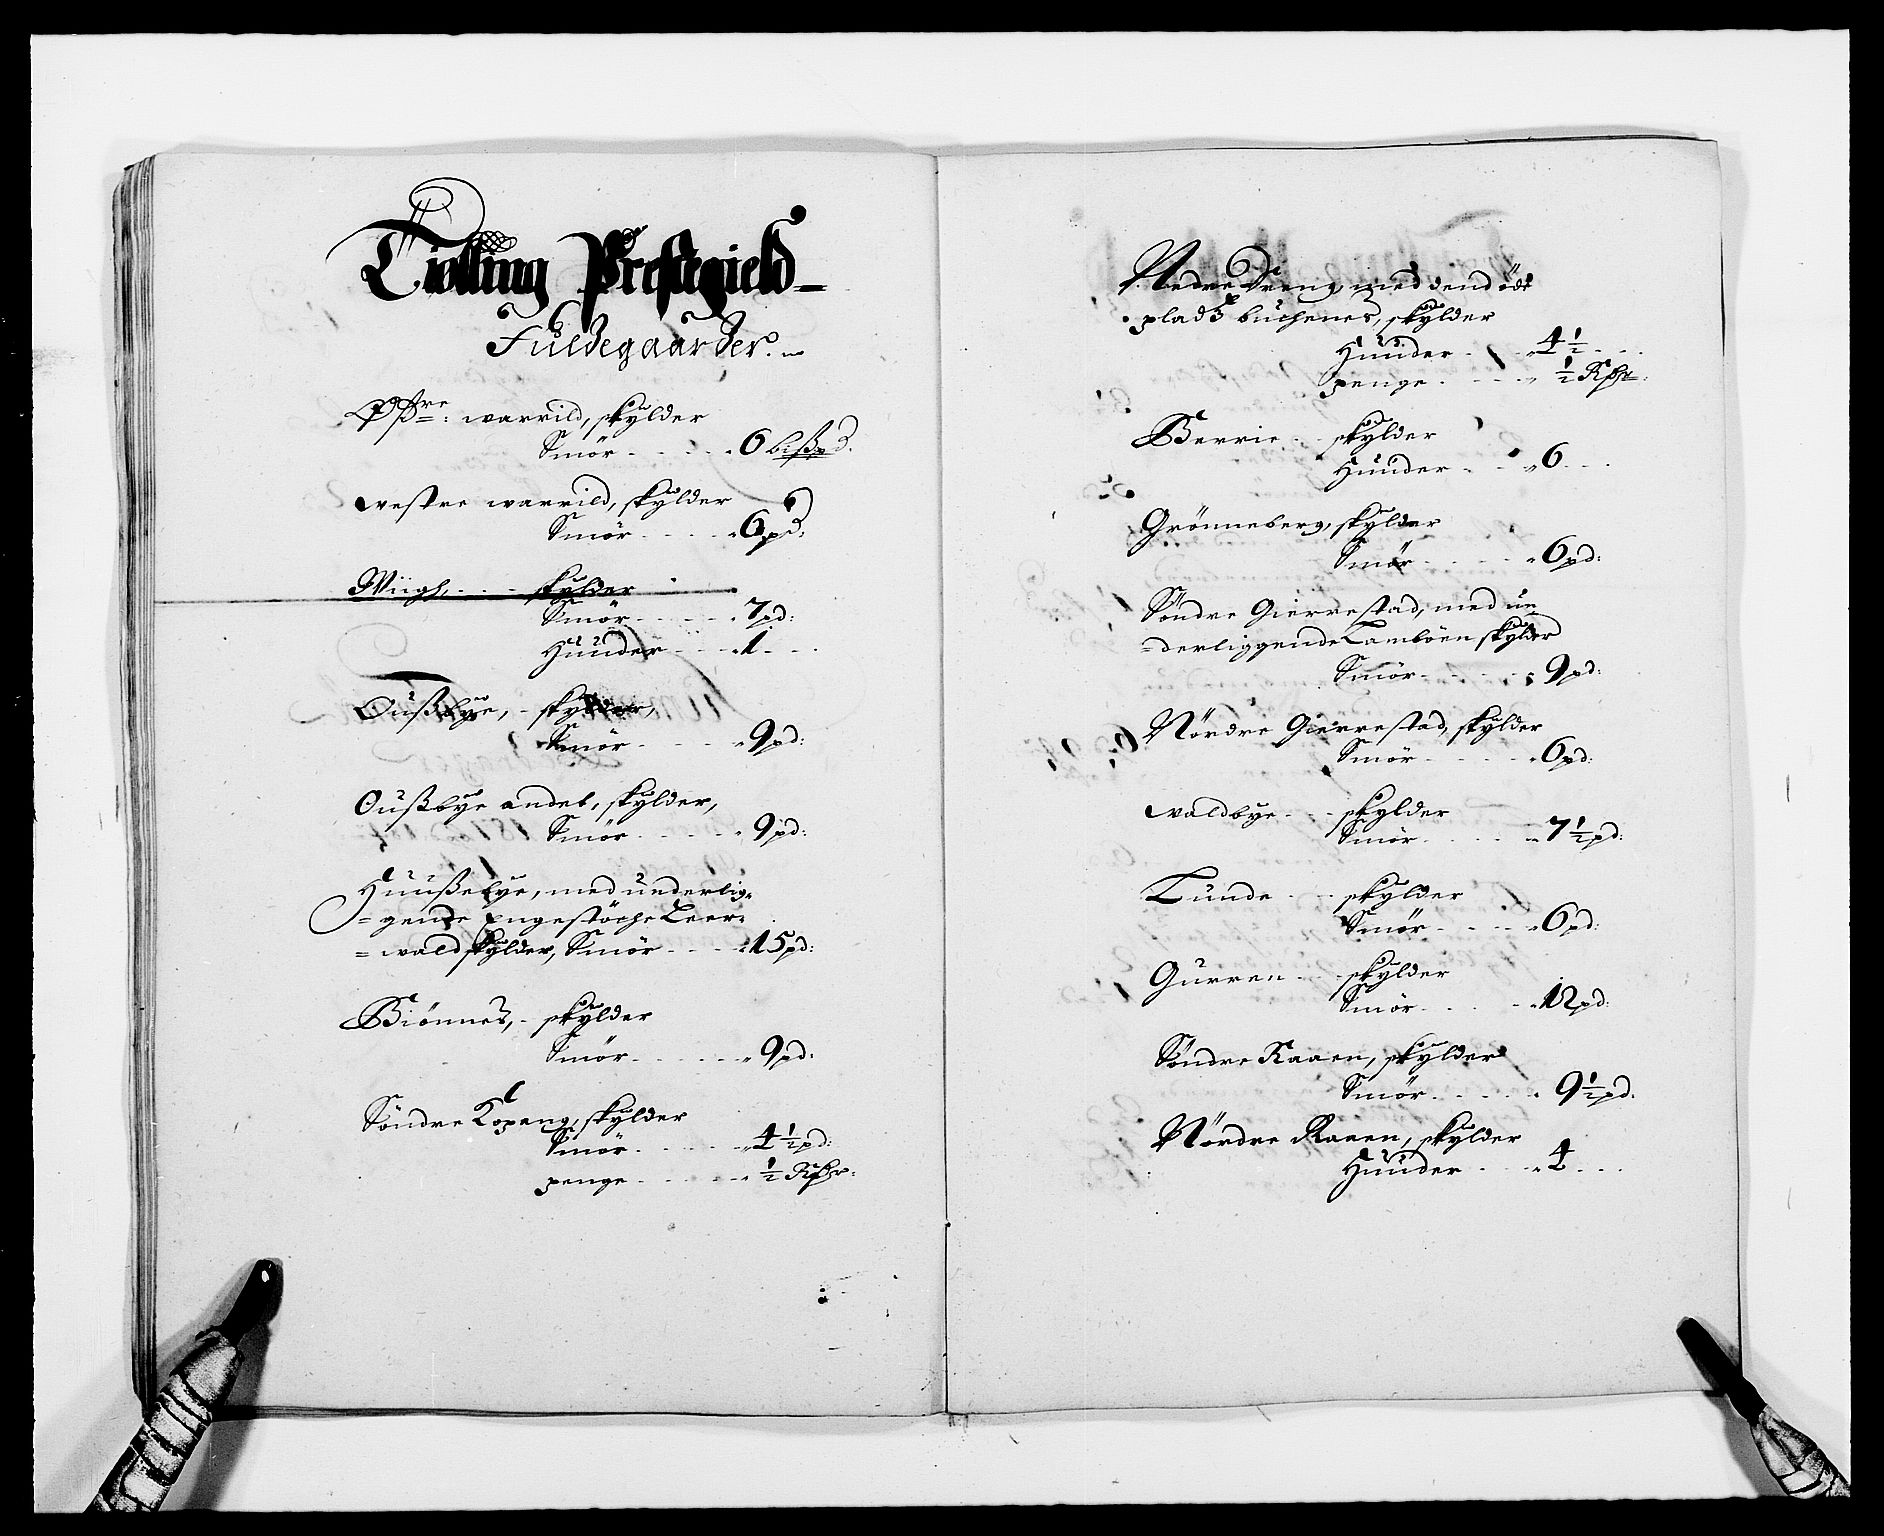 Tiølling Prestegield
Fuldegaarder.
Østre: warrild, skylder
Smör - - - 6 bißpd.
westre warrild, skylder
Smör - - - 6 pd:
Wiigh, - - - skylder
Smör - - - 7 pd:
Huuder - - - 1 - -
Oußbye, - skylder,
Smör - - - 9 pd:
Oußbye andet, skylder,
Smör - - - 9 pd:
Huußebye, med underlig-
= gende Engestöche Leer=
= wald skylder, Smör - - - 15 pd:
Biönnes, - skylder
Smör - - - 9 pd:
Söndre Kopang, skylder
Smör - - - 4 1/2 pd:
penge - - - 1/2 Rßr:
Nedre Dreng, med dend öde
pladß buchenes, skylder
Huuder - - - 4 1/2 - -
penge - - - 1/2 Rßr:
Berrie - - skylder
Huuder - - - 6 - -
Grönneberg, skylder
Smör - - - 6 pd:
Söndre Gierrestad, med un
= derliggende Lamböen skylder
Smör - - - 9 pd:
Nördre Gierrestad, skylder
Smör - - - 6 pd:
waldbye - - skylder
Smör - - - 7 1/2 pd:
Lunde - - skylder
Smör - - - 6 pd:
Gurren - - skylder
Smör - - - 12 pd:
Söndre Raaen, skylder
Smör - - - 9 1/2 pd:
Nördre Raaen, skylder
Huuder - - - 4 - -